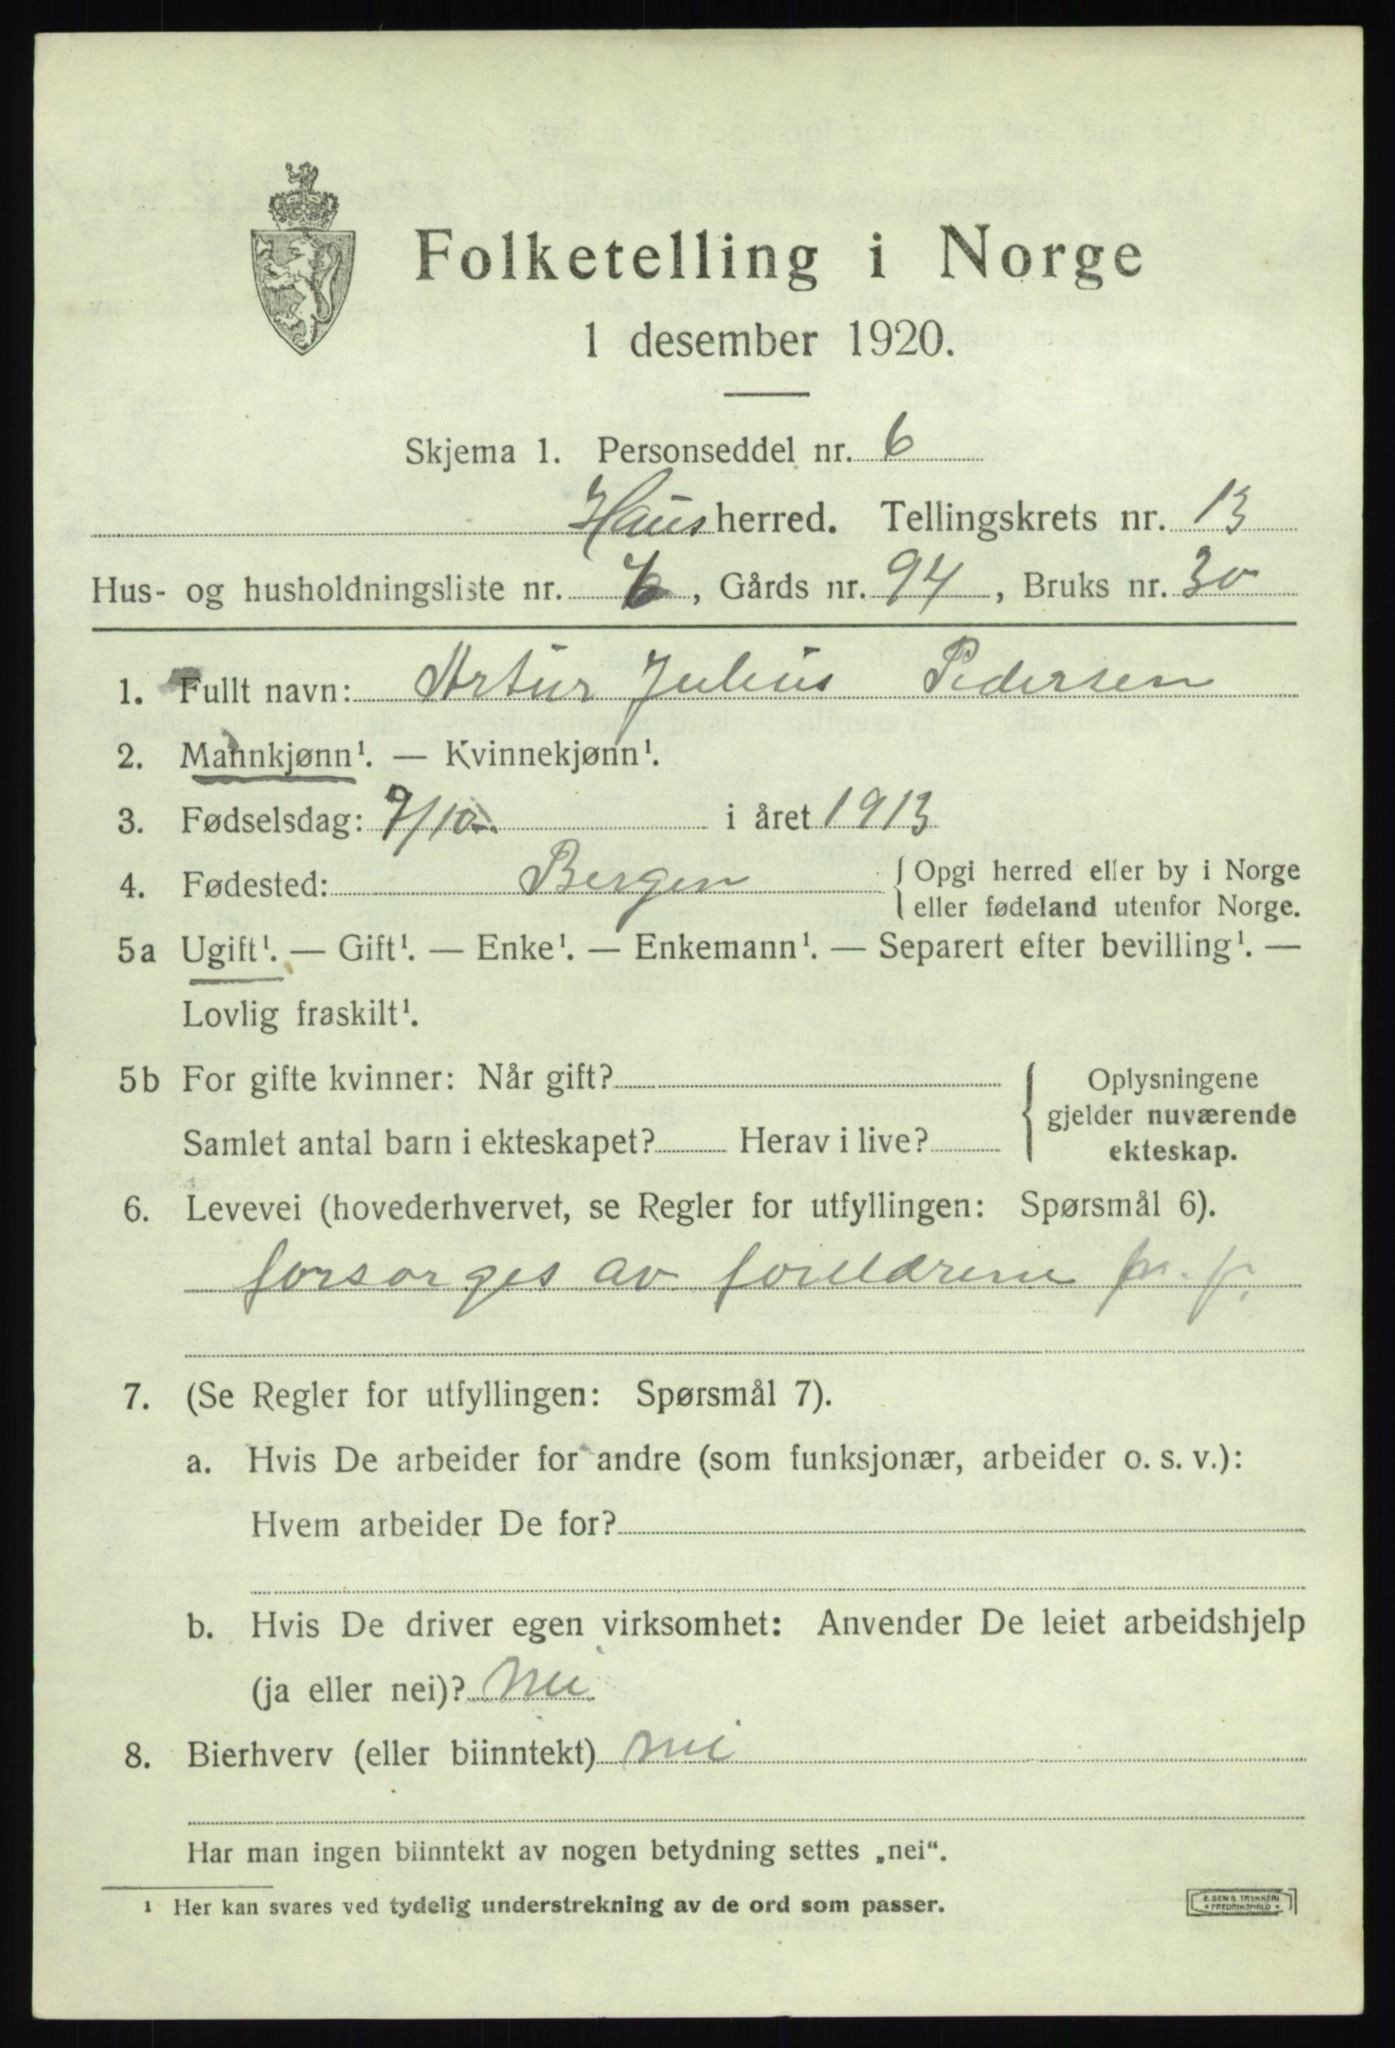 Folketelling i Norge
1 desember 1920.
Skjema 1. Personseddel nr. 6
Haus herred. Tellingskrets nr. 13
Hus- og husholdningsliste nr. 6, Gårds nr. 94, Bruks nr. 30
1. Fullt navn: Artur Julius Pedersen
2. Mannkjønn¹. — Kvinnekjønn¹.
3. Fødselsdag: 9/10 i året 1913
4. Fødested: Bergen { Opgi herred eller by i Norge
eller fødeland utenfor Norge.
5a Ugift¹. — Gift¹. — Enke¹. — Enkemann¹. — Separert efter bevilling¹. —
Lovlig fraskilt¹.
5b For gifte kvinner: Når gift?
Samlet antal barn i ekteskapet? Herav i live?
{ Oplysningene
gjelder nuværende
ekteskap.
6. Levevei (hovederhvervet, se Regler for utfyllingen: Spørsmål 6).
forsorges av foreldrene
7. (Se Regler for utfyllingen: Spørsmål 7).
a. Hvis De arbeider for andre (som funksjonær, arbeider o. s. v.):
Hvem arbeider De for?
b. Hvis De driver egen virksomhet: Anvender De leiet arbeidshjelp
(ja eller nei)? nei
8. Bierhverv (eller biinntekt) nei
Har man ingen biinntekt av nogen betydning settes „nei“.
¹ Her kan svares ved tydelig understrekning av de ord som passer.
E. SEMS TRYKKERI
* FREDRIKSHALD *